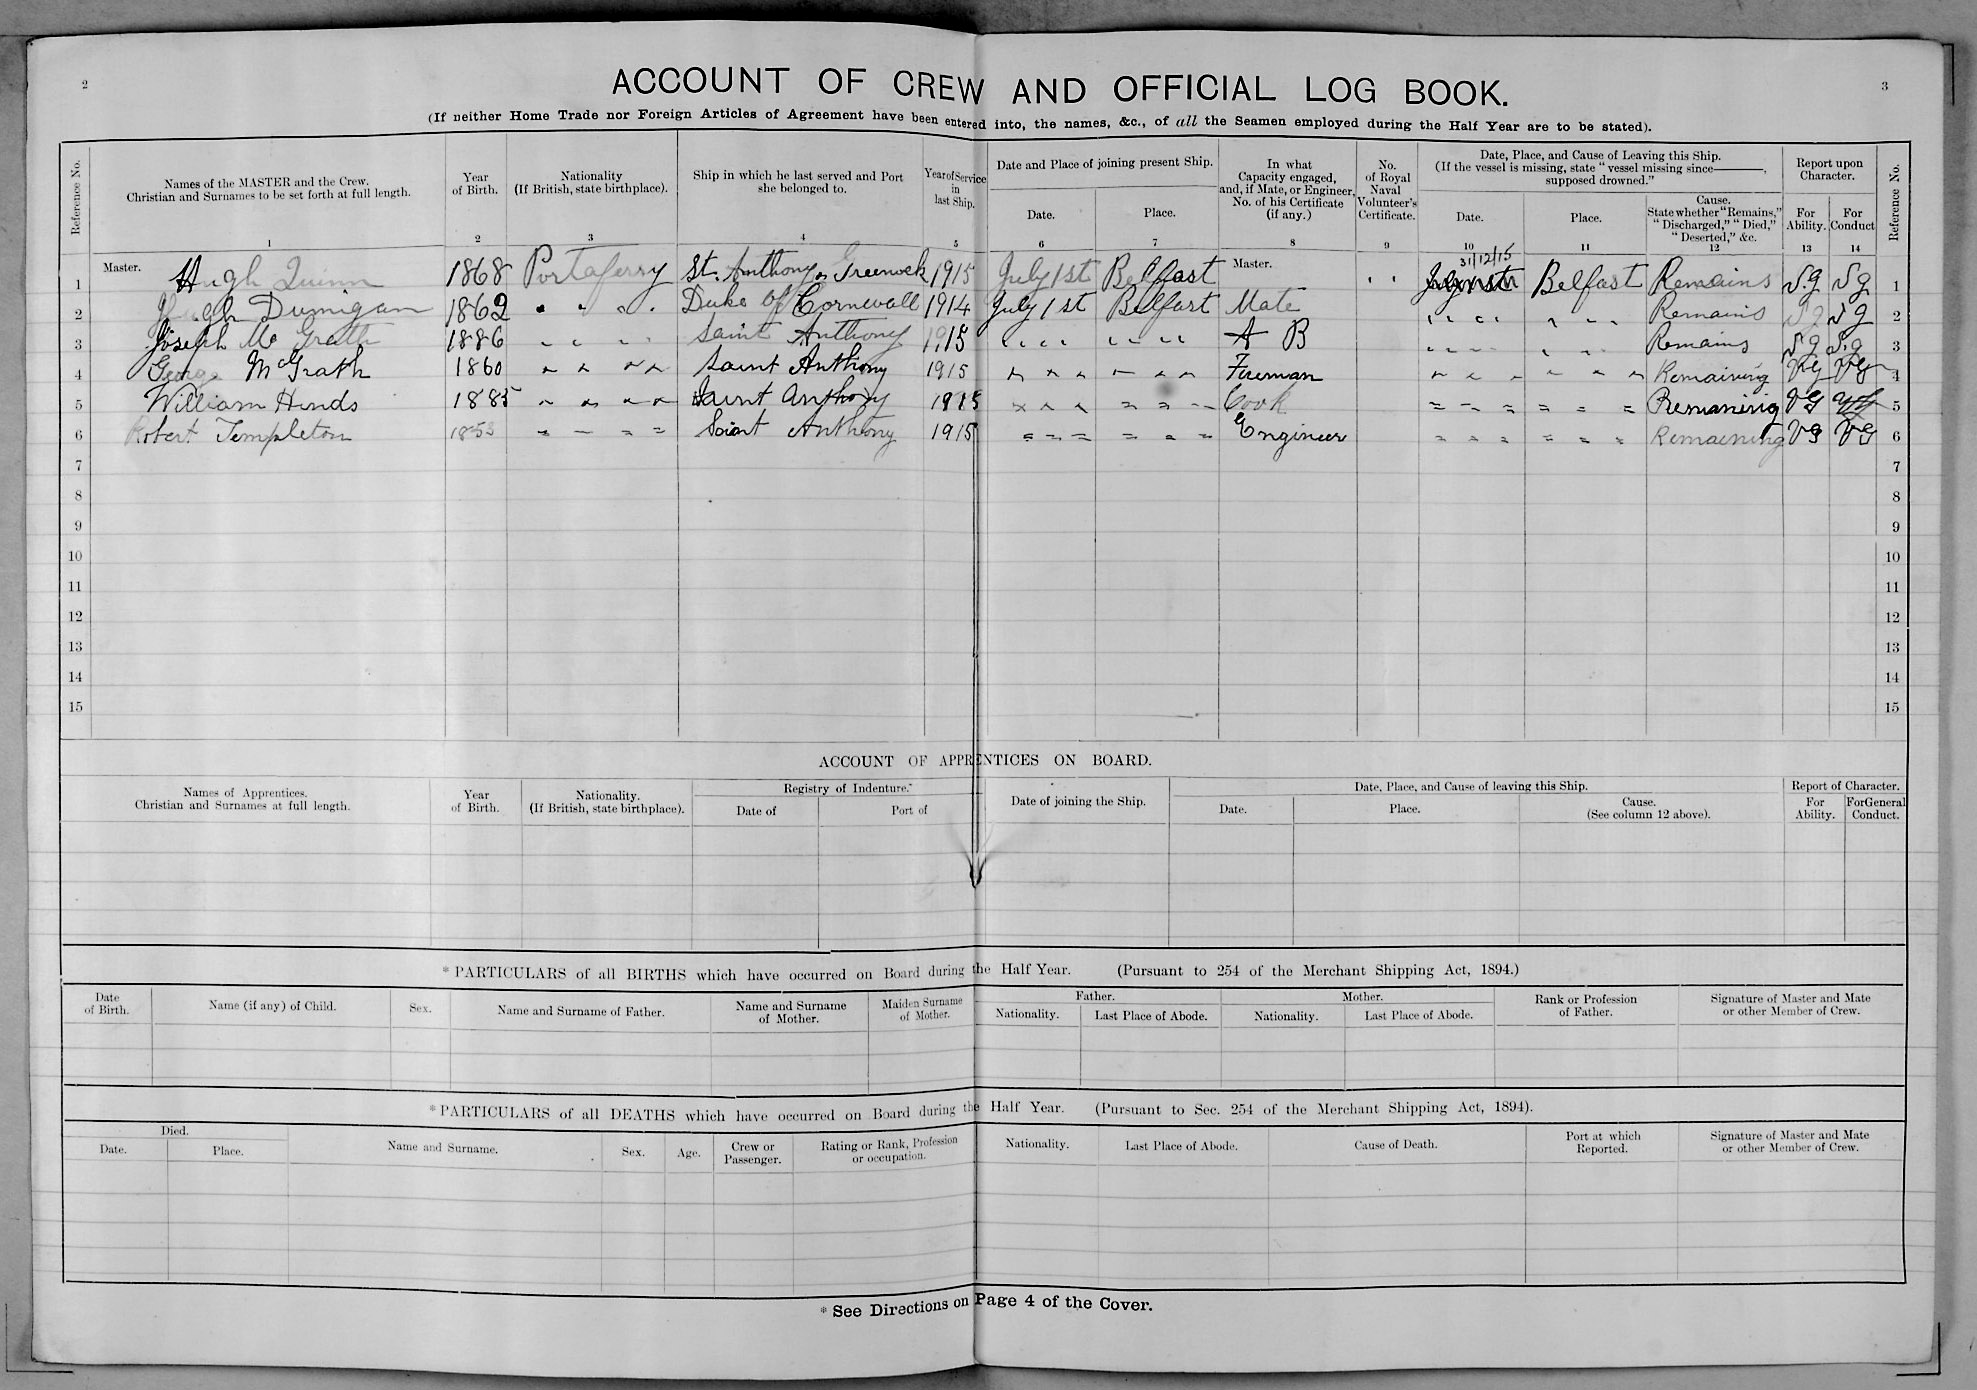 2
3
ACCOUNT OF CREW AND OFFICIAL LOG BOOK.
(If neither Home Trade nor Foreign Articles of Agreement have been entered into, the names, &c., of all the Seamen employed during the Half Year are to be stated).
Reference No.
Names of the MASTER and the Crew.
Christian and Surnames to be set forth at full length.
1
Year
of Birth.
2
Nationality
(If British, state birthplace).
3
Ship in which he last served and Port
she belonged to.
4
Year of Service
in
last Ship.
5
Date and Place of joining present Ship.
Date.
6
Place.
7
In what
Capacity engaged,
and, if Mate, or Engineer,
No. of his Certificate
(if any.)
8
No.
of Royal
Naval
Volunteer's
Certificate.
9
Date, Place, and Cause of Leaving this Ship.
(If the vessel is missing, state "vessel missing since———,
supposed drowned."
Date.
10
Place.
11
Cause.
State whether "Remains,"
"Discharged," "Died,"
"Deserted," &c.
12
Report upon
Character.
For
Ability.
13
For
Conduct
14
Reference No.
1 Master. Hugh Quinn 1868 Portaferry St. Anthony Greenock 1915 July 1st Belfast Master. 31/12/15 Belfast Remains V.g V g 1
2 Hugh Dumigan 1862 " " " " Duke of Cornwall 1914 July 1st Belfast Mate " " " " " " " Remains V g V g 2
3 Joseph Mc Grath 1886 " " " " Saint Anthony 1915 " " " " " " A B " " " " " " " Remains V g V.g 3
4 George McGrath 1860 " " " " Saint Anthony 1915 " " " " " " Fireman " " " " " " Remaining VG VG 4
5 William Hinds 1885 " " " " Saint Anthony 1915 " " " " " " Cook " " " " " " Remaining VG VG 5
6 Robert Templeton 1853 " " " " Saint Anthony 1915 " " " " " " Engineer " " " " " " Remaining VG VG 6
7 7
8 8
9 9
10 10
11 11
12 12
13 13
14 14
15 15
ACCOUNT OF APPRENTICES ON BOARD.
Names of Apprentices.
Christian and Surnames at full length.
Year
of Birth.
Nationality.
(If British, state birthplace).
Registry of Indenture.
Date of
Port of
Date of joining the Ship.
Date, Place, and Cause of leaving this Ship.
Date.
Place.
Cause.
(See column 12 above).
Report of Character.
For
Ability.
For General
Conduct.
*PARTICULARS of all BIRTHS which have occurred on Board during the Half Year. (Pursuant to 254 of the Merchant Shipping Act, 1894.)
Date
of Birth.
Name (if any) of Child.
Sex.
Name and Surname of Father.
Name and Surname
of Mother.
Maiden Surname
of Mother.
Father.
Nationality.
Last Place of Abode.
Mother.
Nationality.
Last Place of Abode.
Rank or Profession
of Father.
Signature of Master and Mate
or other Member of Crew.
*PARTICULARS of all DEATHS which have occurred on Board during the Half Year. (Pursuant to Sec. 254 of the Merchant Shipping Act, 1894).
Died.
Date.
Place.
Name and Surname.
Sex.
Age.
Crew or
Passenger.
Rating or Rank, Profession
or occupation.
Nationality.
Last Place of Abode.
Cause of Death.
Port at which
Reported.
Signature of Master and Mate
or other Member of Crew.
* See Directions on Page 4 of the Cover.